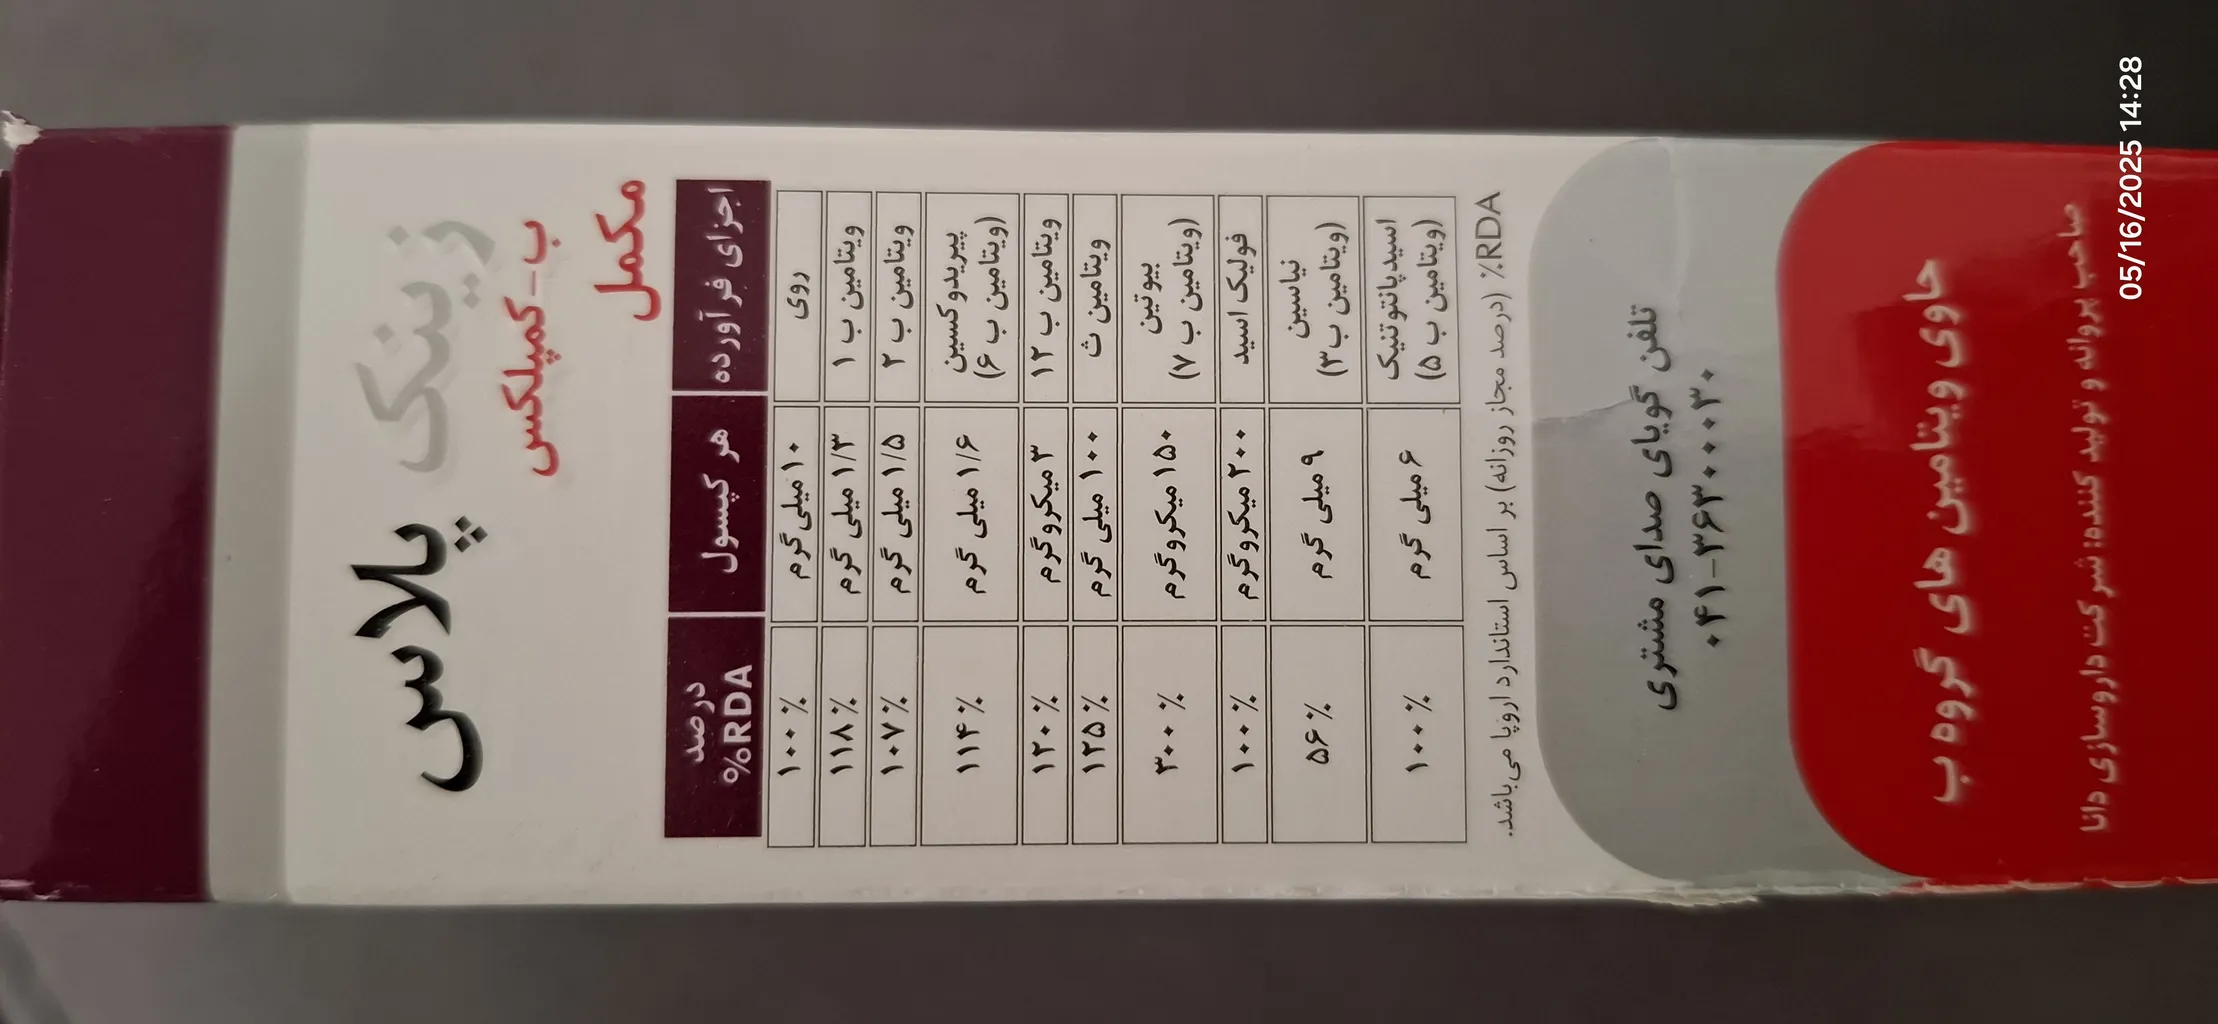 زینک پلاس
ب-کمپلکس
مکمل
اجزای فرآورده هر کپسول درصد %RDA
روی ۱۰میلی گرم ۱۰۰٪
ویتامین ب ۱ ۱/۳ میلی گرم ۱۱۸٪
ویتامین ب ۲ ۱/۵ میلی گرم ۱۰۷٪
پیریدوکسین (ویتامین ب ۶) ۱/۶ میلی گرم ۱۱۴٪
ویتامین ب ۱۲ ۳ میکروگرم ۱۲۰٪
ویتامین ث ۱۰۰ میلی گرم ۱۲۵٪
بیوتین (ویتامین ب ۷) ۱۵۰ میکروگرم ۳۰۰٪
فولیک اسید ۲۰۰ میکروگرم ۱۰۰٪
نیاسین (ویتامین ب۳) ۹ میلی گرم ۵۶٪
اسیدپانتوتنیک (ویتامین ب ۵) ۶ میلی گرم ۱۰۰٪
RDA٪ (درصد مجاز روزانه) بر اساس استاندارد اروپا می‌باشد.
تلفن گویای صدای مشتری
۰۴۱-۳۶۳۰۰۰۰۳۰
حاوی ویتامین های گروه ب
صاحب پروانه و تولید کننده: شرکت داروسازی دانا
05/16/2025 14:28